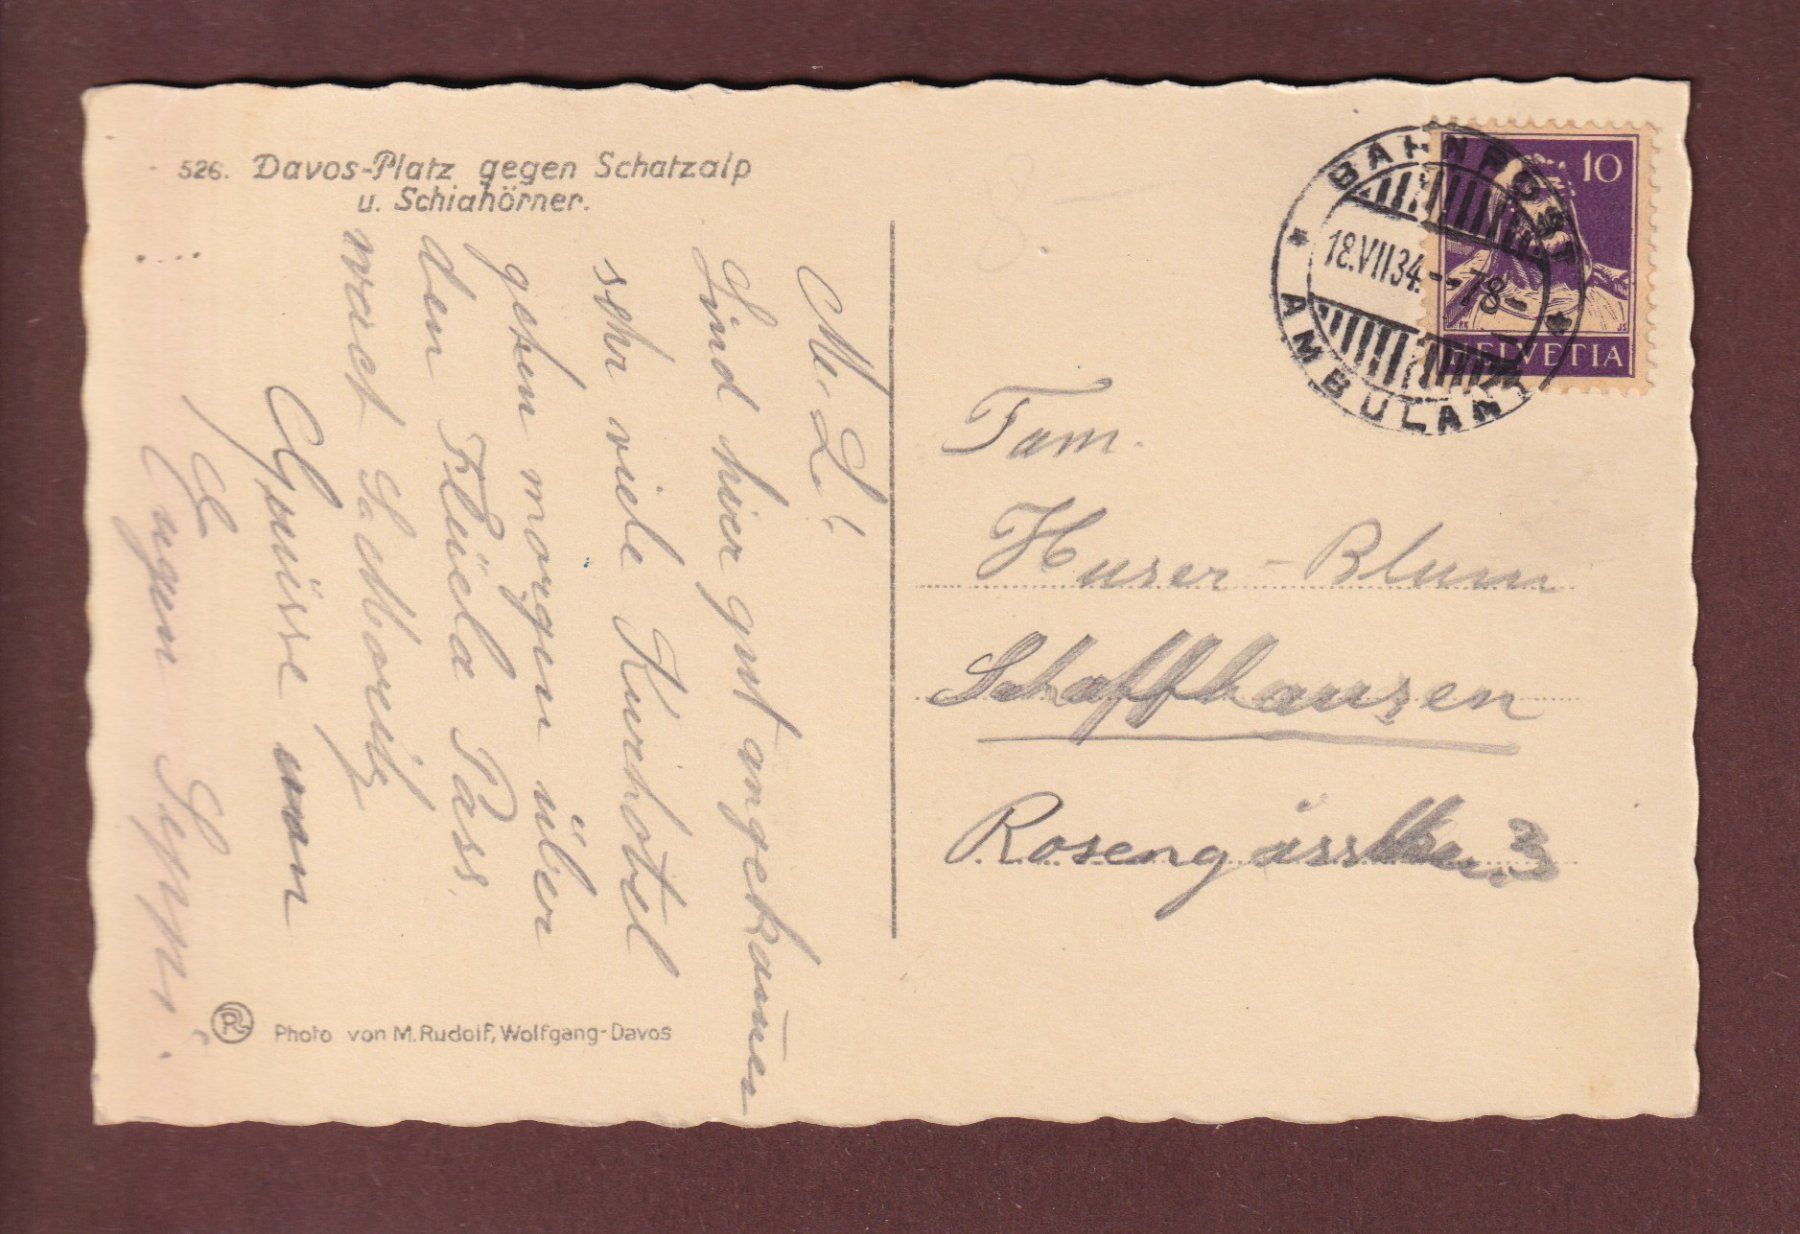 526. Davos-Platz gegen Schatzalp
u. Schiahörner.
M. L!
Sind hier gut angekommen
sehr viele Kurhotel
gehen morgen über
den Flüela Pass
nach St. Moritz
Grüsse von
Eugen
Photo von M. Rudolf, Wolfgang-Davos
BAHNPOST
18.VII 34.--78-
AMBULANT
10
HELVETIA
Fam.
Huser-Blum
Schaffhausen
3